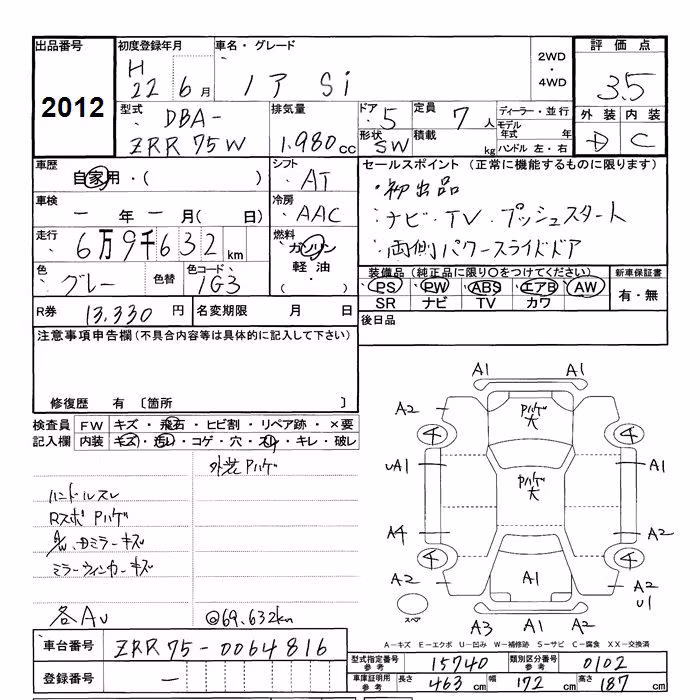 出品番号 初度登録年月 車名・グレード 2WD ・ 4WD 評価点
2012 H 22 6月 ノア Si 3.5
型式 DBA- ZRR75W 排気量 1.980cc ドア 5 定員 7人 ディーラー・並行
形状 SW 積載 kg モデル年式 年 ハンドル 左・右
外装 内装
D C
車歴 自家用・( ) シフト AT セールスポイント (正常に機能するものに限ります)
車検 一年一月(日) 冷房 AAC ・初出品
・ナビ・TV・プッシュスタート
走行 6万9千632km 燃料 ガソリン 軽油・( ) ・両側パワースライドドア
色 グレー 色替 色コード 1G3
装備品(純正品に限り○をつけてください) 新車保証書
PS PW ABS エアB AW 有・無
SR ナビ TV カワ
R券 13,330円 名変期限 月 日 後日品
注意事項申告欄(不具合内容等は具体的に記入して下さい)
修復歴 有 〔箇所 〕
検査員 FW キズ・飛石・ヒビ割・リペア跡・×要
記入欄 内装 キズ・汚レ・コゲ・穴・スレ・キレ・破レ
外装Pハゲ
ハンドルスレ
RスポPハゲ
A/W、Dミラーキズ
ミラーウィンカーキズ
各AU @69,632km
A1 A1
A2 Pハゲ大 A2
4 4
uA1 Pハゲ大 A1
A4 A2
4 4
A2 A1 A2
u1
スペア A3 A1 A2
A-キズ E-エクボ U-凹み W-補修跡 S-サビ C-腐食 XX-交換済
車台番号 ZRR75-0064816
型式指定番号 参考 15740 類別区分番号 参考 0102
登録番号 一 車庫証明用 参考 長さ 463cm 幅 172cm 高さ 187cm